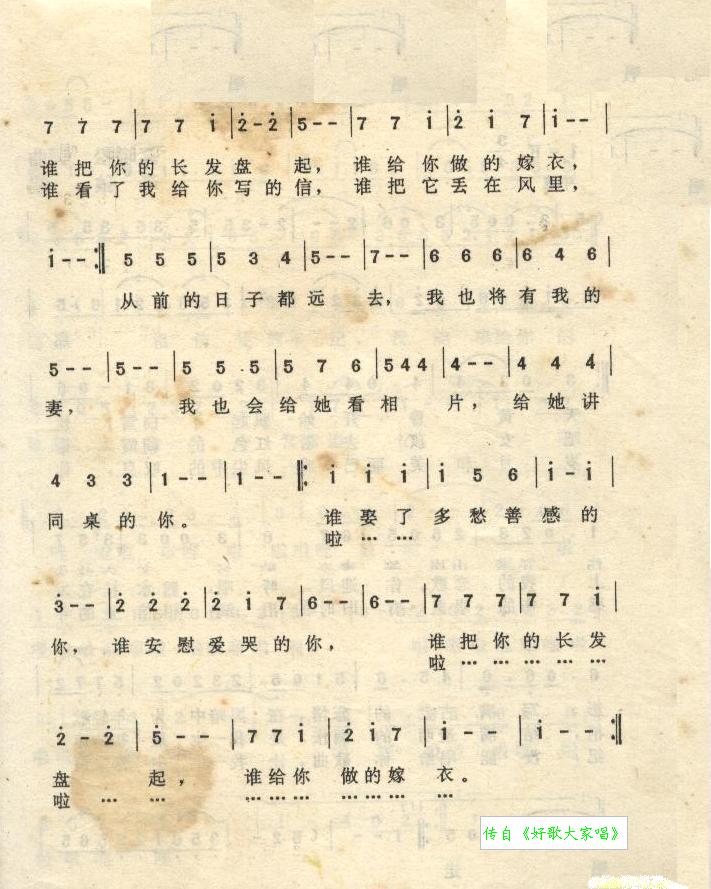 7 7 7 | 7 7 i | 2̇ - 2̇ | 5 - - | 7 7 i | 2̇ i 7 | i - - |
谁把你的长发盘起，谁给你做的嫁衣，
谁看了我给你写的信，谁把它丢在风里，
i - - :‖ 5 5 5 | 5 3 4 | 5 - - | 7 - - | 6 6 6 | 6 4 6 |
从前的日子都远去，我也将有我的
5 - - | 5 - - | 5 5 5 | 5 7 6 | 5 4 4 | 4 - - | 4 4 4 |
妻，我也会给她看相片，给她讲
4 3 3 | 1 - - | 1 - - ‖: i i i | i 5 6 | i - i |
同桌的你。谁娶了多愁善感的
啦……
3̇ - - | 2̇ 2̇ 2̇ | 2̇ i 7 | 6 - - | 6 - - | 7 7 7 | 7 7 i |
你，谁安慰爱哭的你，谁把你的长发
啦……………
2̇ - 2̇ | 5 - - | 7 7 i | 2̇ i 7 | i - - | i - - :‖
盘起，谁给你做的嫁衣。
啦…………………………
传自《好歌大家唱》